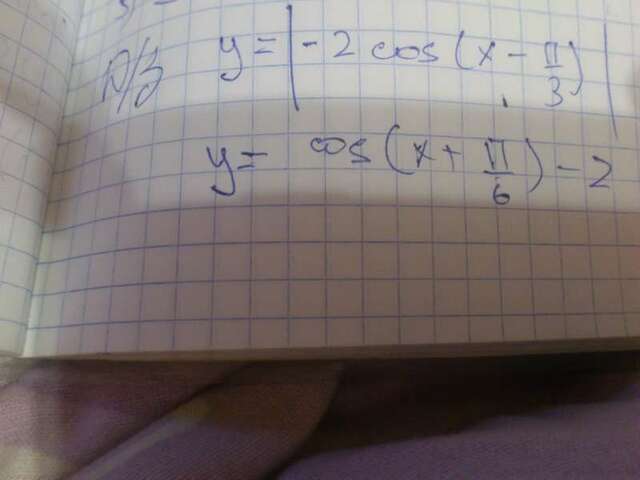 Д/з y = |-2 cos(x - π/3)|
y = cos(x + π/6) - 2